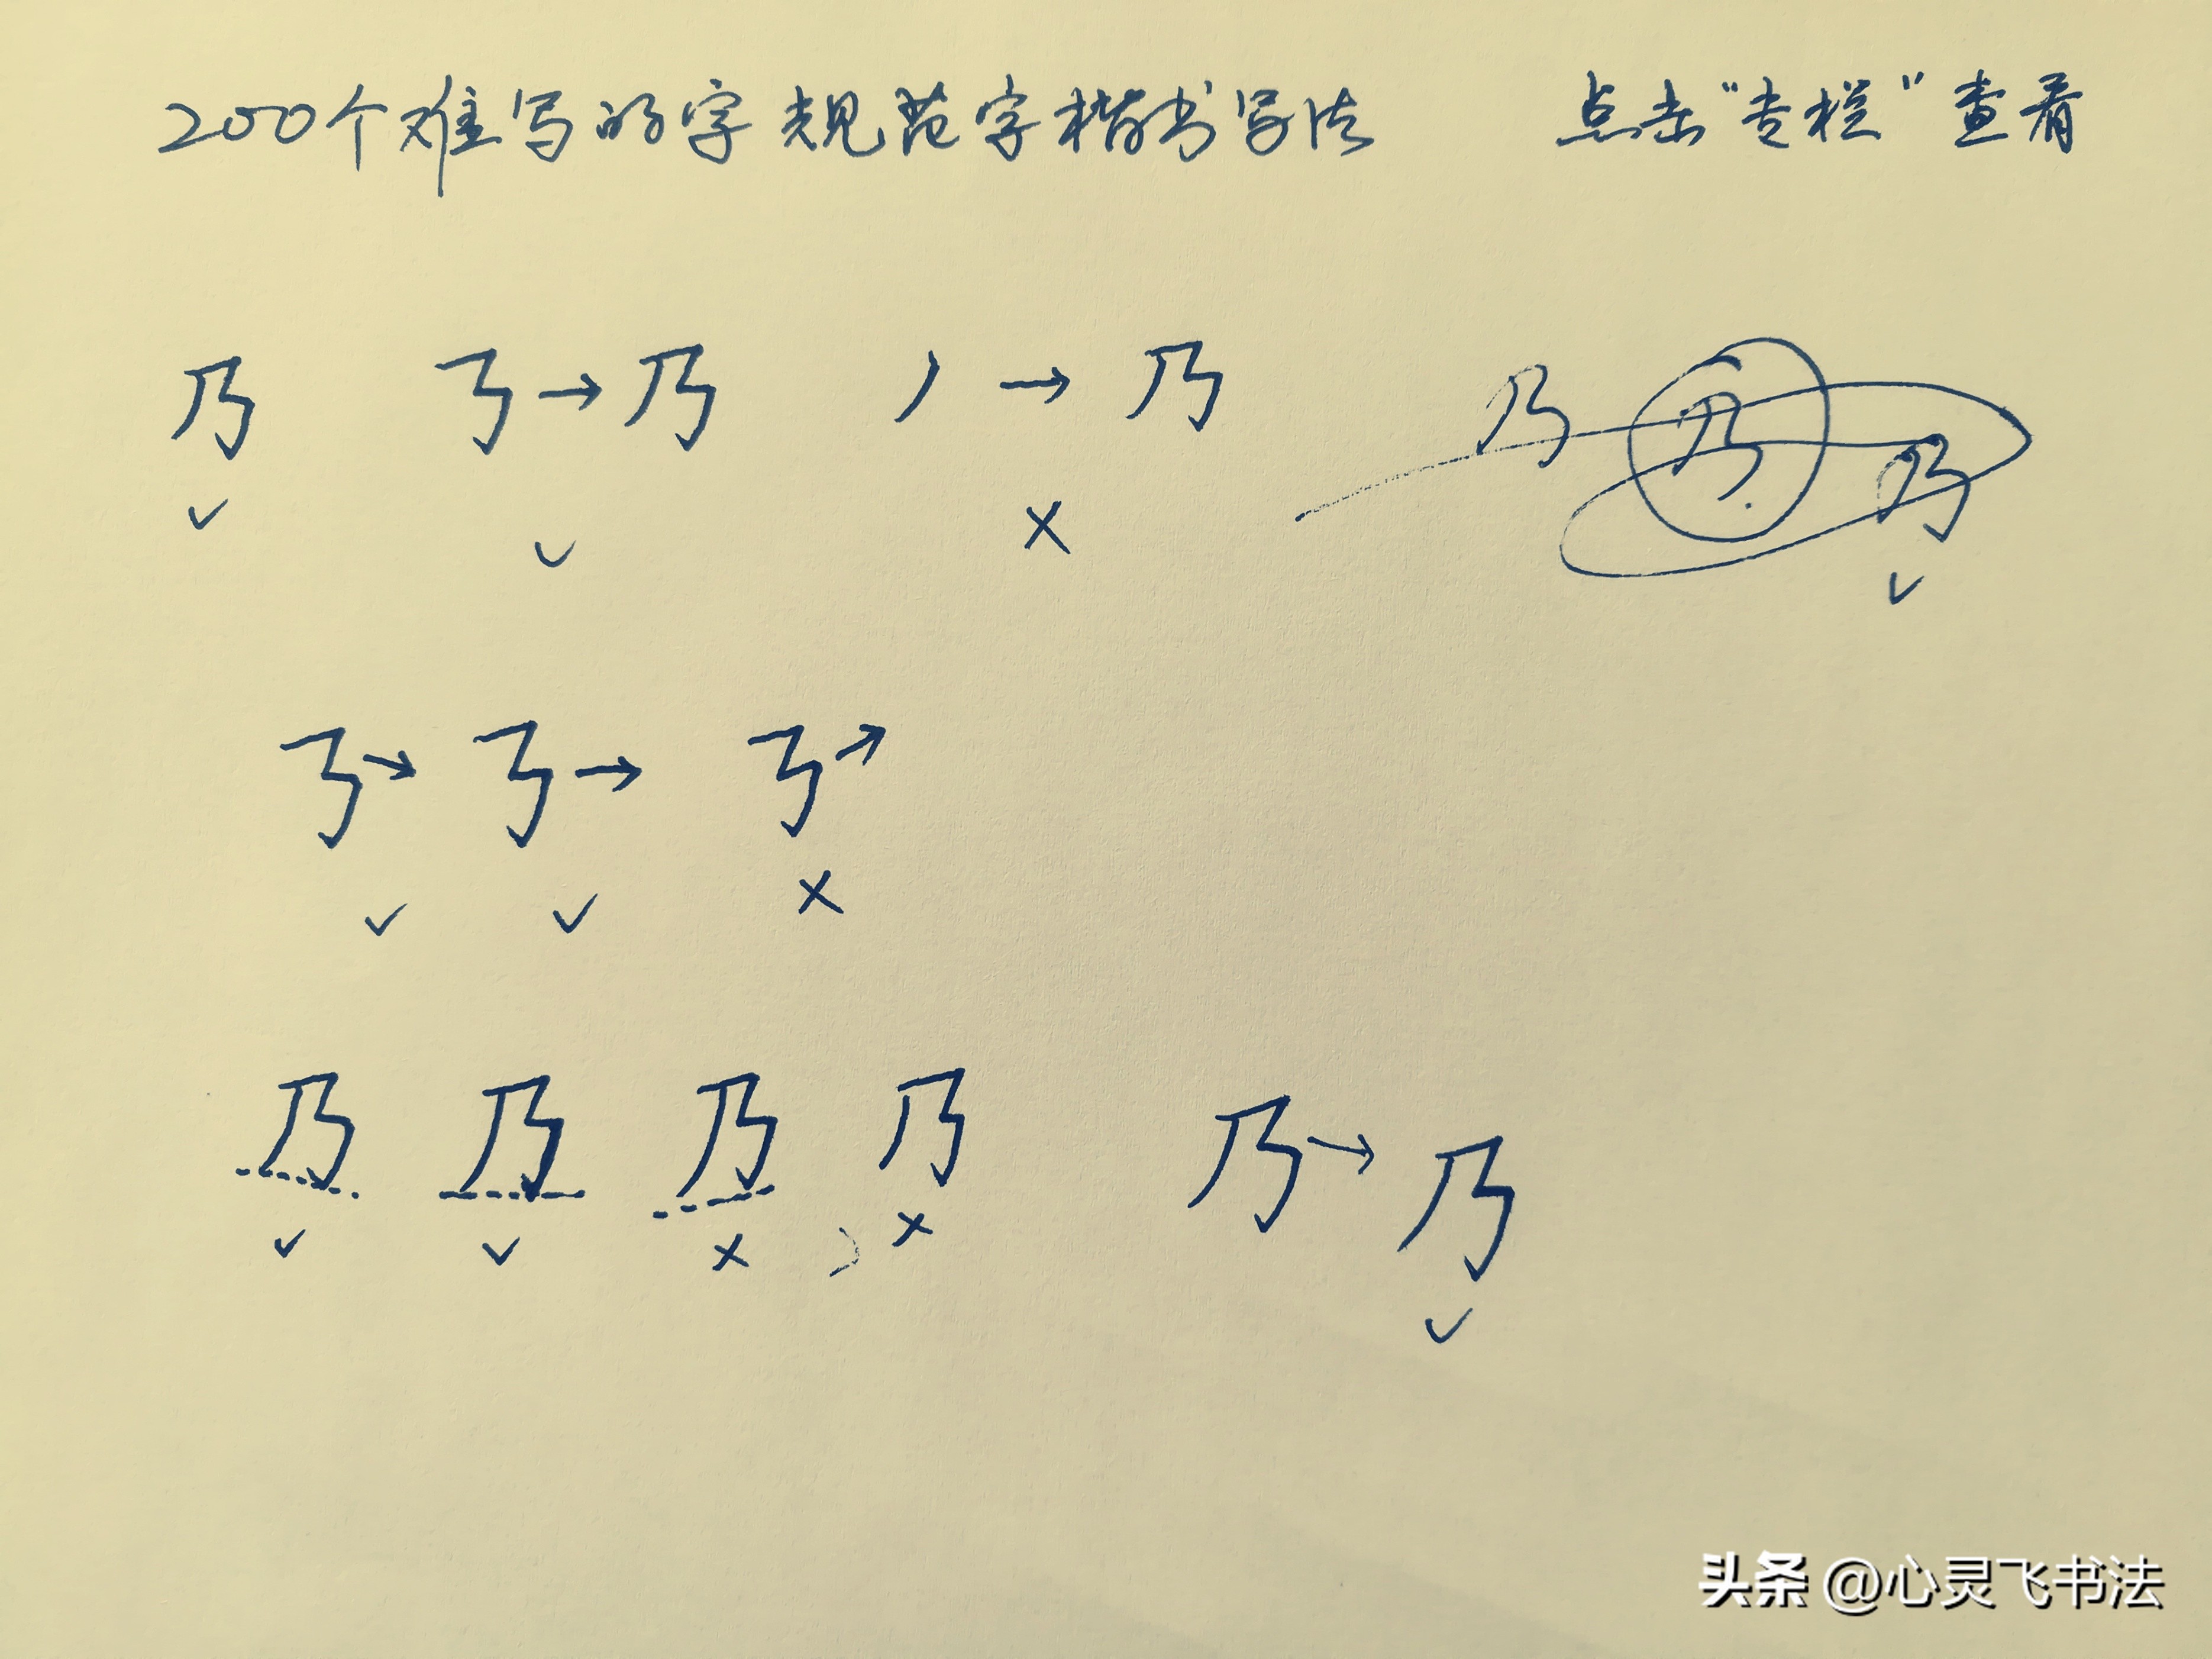 200个难写的字规范字楷书写法 点击“专栏”查看
乃 → 乃 → 乃 乃 乃 乃
✓ ✓ × ✓
→ → →
✓ ✓ ×
乃 乃 乃 乃 乃 → 乃
✓ ✓ × × ✓
头条 @心灵飞书法